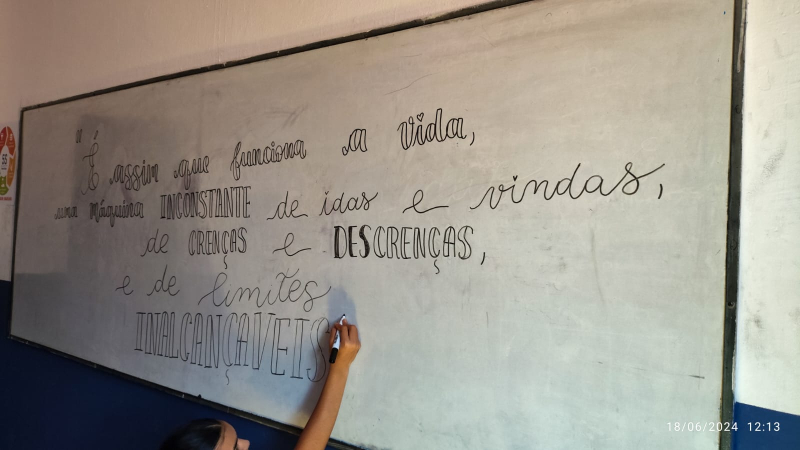 "É assim que funciona a vida,
uma máquina INCONSTANTE de idas e vindas,
de CRENÇAS e DESCRENÇAS,
e de limites
INALCANÇAVEIS
18/06/2024 12:13